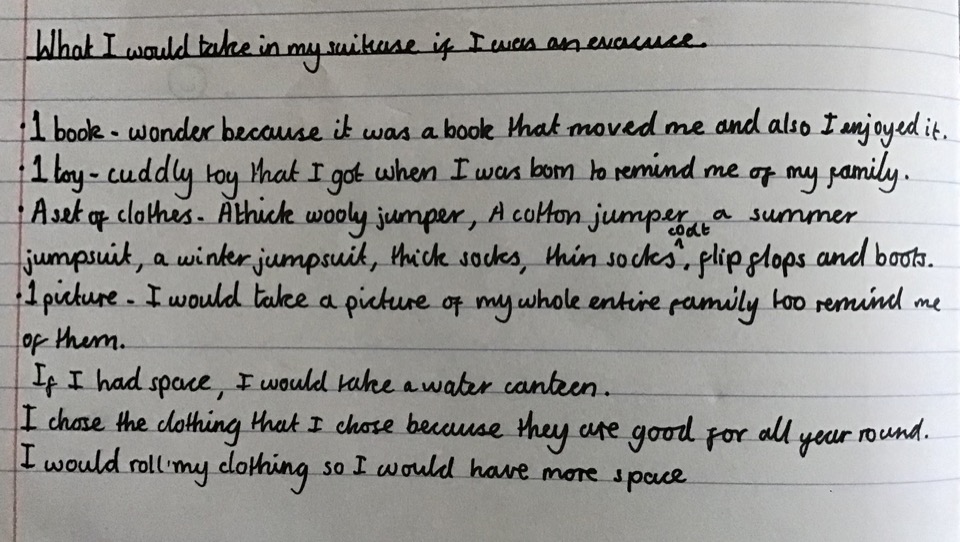 What I would take in my suitcase if I was an evacuee.
· 1 book - wonder because it was a book that moved me and also I enjoyed it.
· 1 toy - cuddly toy that I got when I was born to remind me of my family.
· A set of clothes - A thick wooly jumper, A cotton jumper, a summer
coat
jumpsuit, a winter jumpsuit, thick socks, thin socks, flip flops and boots.
· 1 picture - I would take a picture of my whole entire family too remind me
of them.
If I had space, I would take a water canteen.
I chose the clothing that I chose because they are good for all year round.
I would roll my clothing so I would have more space